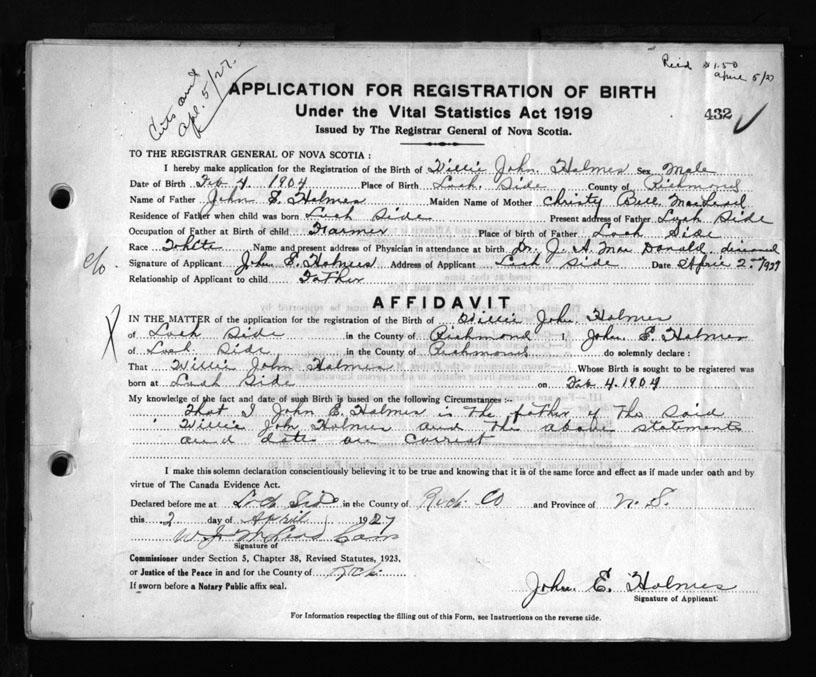 Recd $1.50
April 5/27
Apl. 5/27.
APPLICATION FOR REGISTRATION OF BIRTH
Under the Vital Statistics Act 1919
432
Issued by The Registrar General of Nova Scotia.
TO THE REGISTRAR GENERAL OF NOVA SCOTIA :
I hereby make application for the Registration of the Birth of Willie John Holmes Sex Male
Date of Birth Feb 4 1904 Place of Birth Loch Side County of Richmond
Name of Father John E. Holmes Maiden Name of Mother Christy Bell MacLeod
Residence of Father when child was born Loch Side Present address of Father Loch Side
Occupation of Father at Birth of child Farmer Place of birth of Father Loch Side
Race White Name and present address of Physician in attendance at birth Dr. J. A. Mac Donald, deceased
c/o. Signature of Applicant John E. Holmes Address of Applicant Loch Side Date April 2nd 1927
Relationship of Applicant to child Father
AFFIDAVIT
IN THE MATTER of the application for the registration of the Birth of Willie John Holmes
of Loch Side in the County of Richmond I John E. Holmes
of Loch Side in the County of Richmond do solemnly declare :
That Willie John Holmes Whose Birth is sought to be registered was
born at Loch Side on Feb 4. 1904
My knowledge of the fact and date of such Birth is based on the following Circumstances :-
That I John E. Holmes is the father of the said
Willie John Holmes and the above statements
and dates are correct
I make this solemn declaration conscientiously believing it to be true and knowing that it is of the same force and effect as if made under oath and by
virtue of The Canada Evidence Act.
Declared before me at Loch Side in the County of Rich. Co and Province of N. S.
this 2 day of April 1927
Signature of
Commissioner under Section 5, Chapter 38, Revised Statutes, 1923,
or Justice of the Peace in and for the County of Rich.
If sworn before a Notary Public affix seal.
John E. Holmes
Signature of Applicant.
For Information respecting the filling out of this Form, see Instructions on the reverse side.